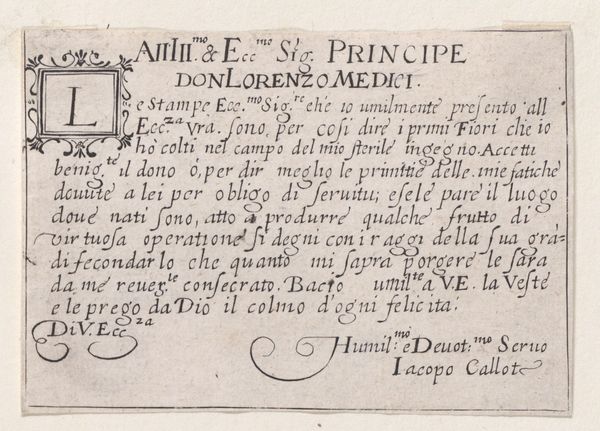 All Ill.mo & Ecc.mo Sig. PRINCIPE
DON LORENZO MEDICI.
Le Stampe Ecc.mo Sig.re ch'è io umilmente presento all
Ecc.za Vrã. sono, per cosi dire i primi Fiori che io
hò colti nel campo del mio sterile ingegno. Accetti
benig.te il dono ó, per dir meglio le primitie delle mie fatiche
douute a lei per obligo di seruitu; e se le pare il luogo
doue nati sono, atto à produrre qualche frutto di
virtuosa operatione si degni con i raggi della sua grã-
di fecondarlo che quanto mi saprà porgere le sarà
da me reuer.te consecrato. Bacio umil.te a V.E. la Veste
e le prego da Dio il colmo d'ogni felicità.
Di V. Ecc.za
Humil.mo e Deuot.mo Seruo
Iacopo Callot